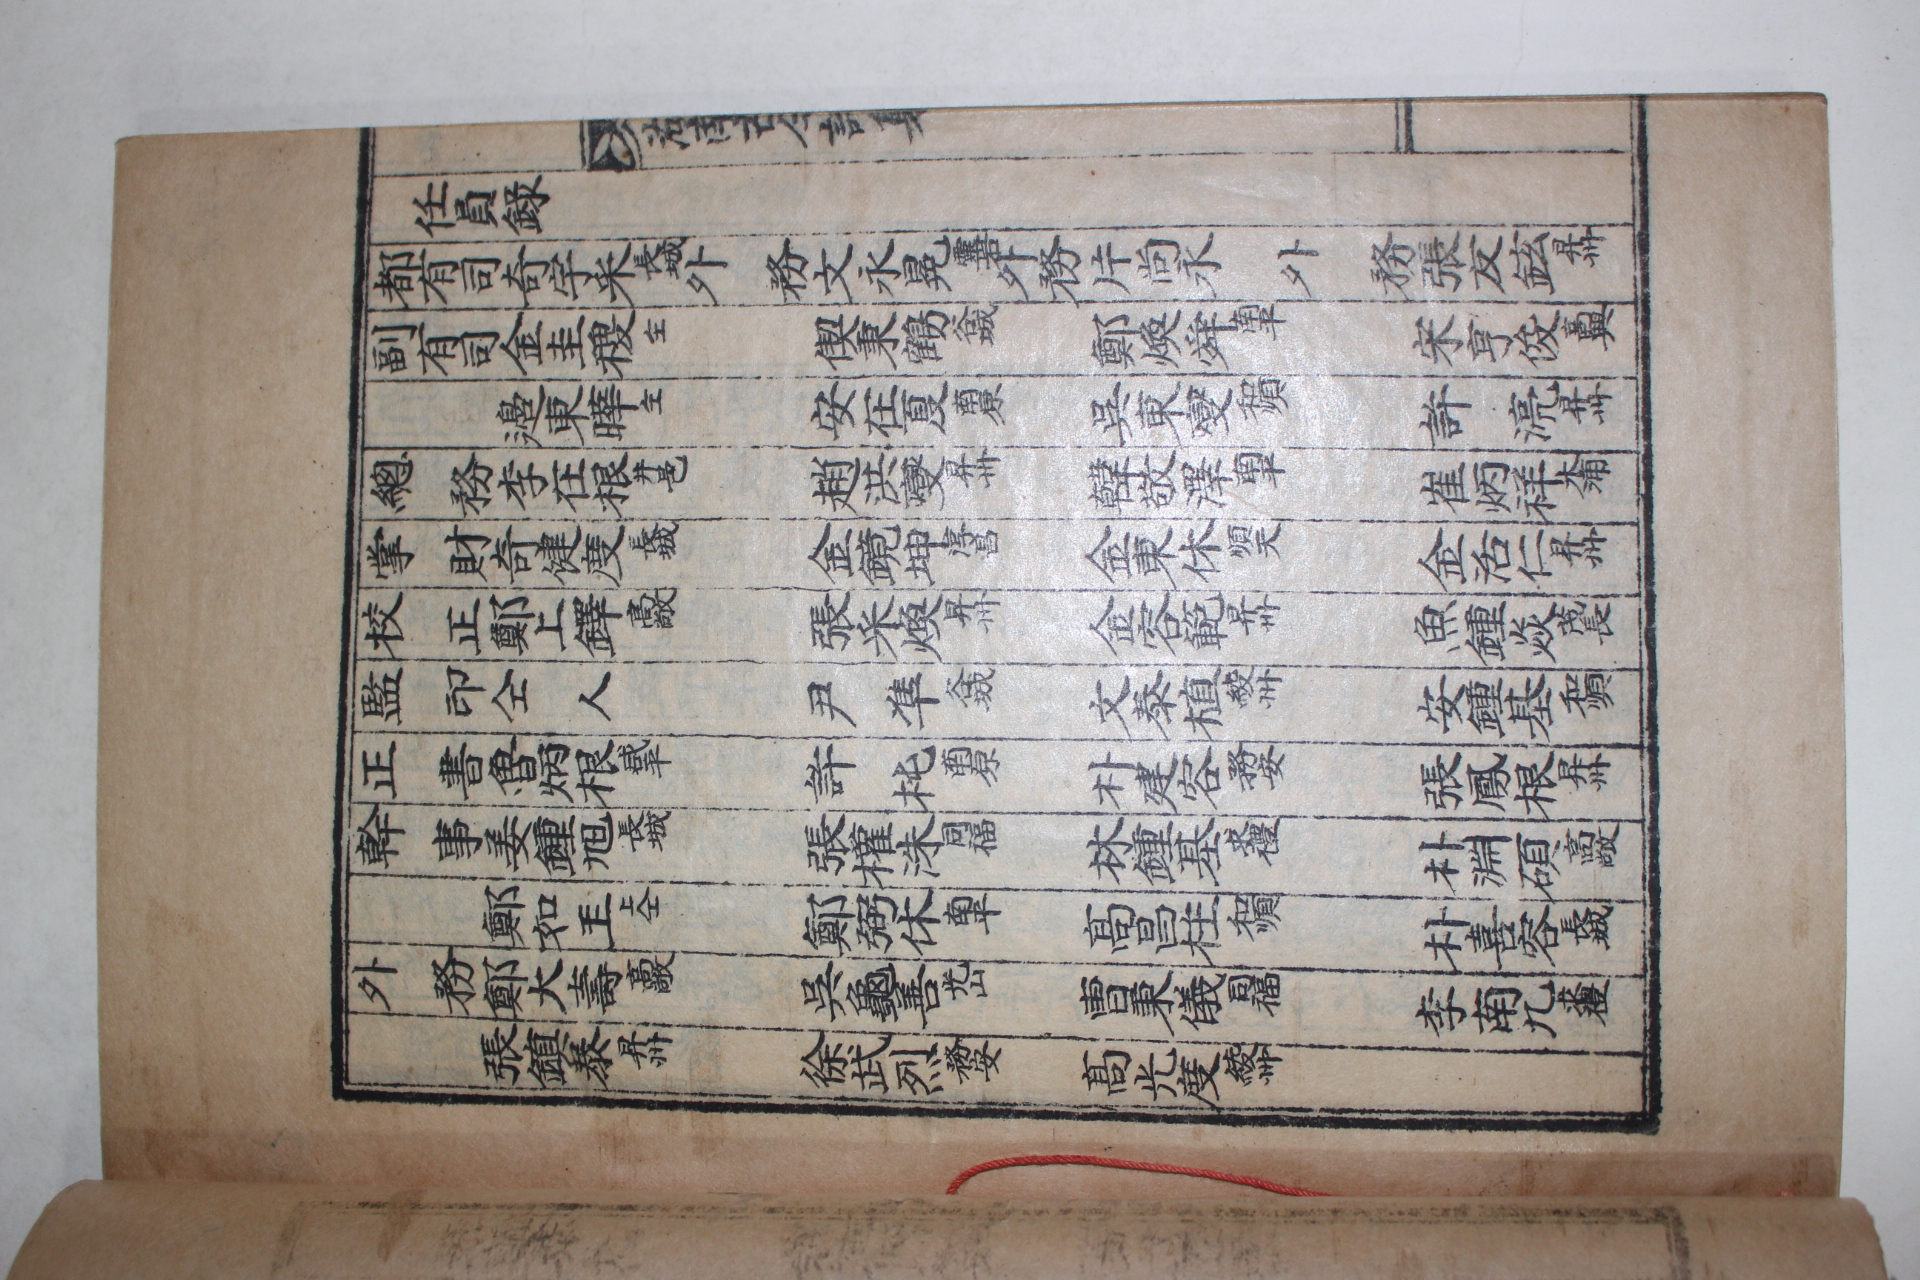 任員錄
都有司奇宇采長城 外 務文永晃靈岩 外務片尚永 外 務張友鉉昇州
副有司金圭稷仝 偰秉鶴谷城 鄭煥舜南平 宋亨俊高興
邊東曄仝 安在夏南原 吳東燮和順 許 浣昇州
總 務李在根井邑 趙洪燮昇州 韓敬澤南平 崔炳祥木浦
掌 財奇健度長城 金鏡坤淳昌 金東休順天 金活仁昇州
校 正鄭上鐸高敞 張采煥昇州 金容範昇州 魚鍾焱茂長
監 印仝 人 尹 準谷城 文泰植綾州 安鍾基和順
正 書魯炳根咸平 許 杶南原 朴建容務安 張鳳根昇州
幹 事姜鍾旭長城 張權洙同福 林鍾基求禮 朴淵碩高敞
鄭如玉上仝 鄭弼休南平 高昌柱和順 朴喜容長城
外 務鄭大壽高敞 吳龜善光山 曺秉儀同福 李南九求禮
張鎮泰昇州 徐武烈務安 高光度綾州